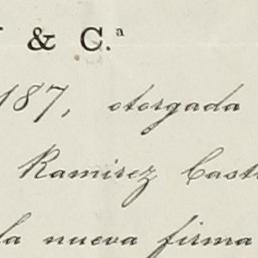 & C.ª
187, otorgada
Ramirez
la nueva firma